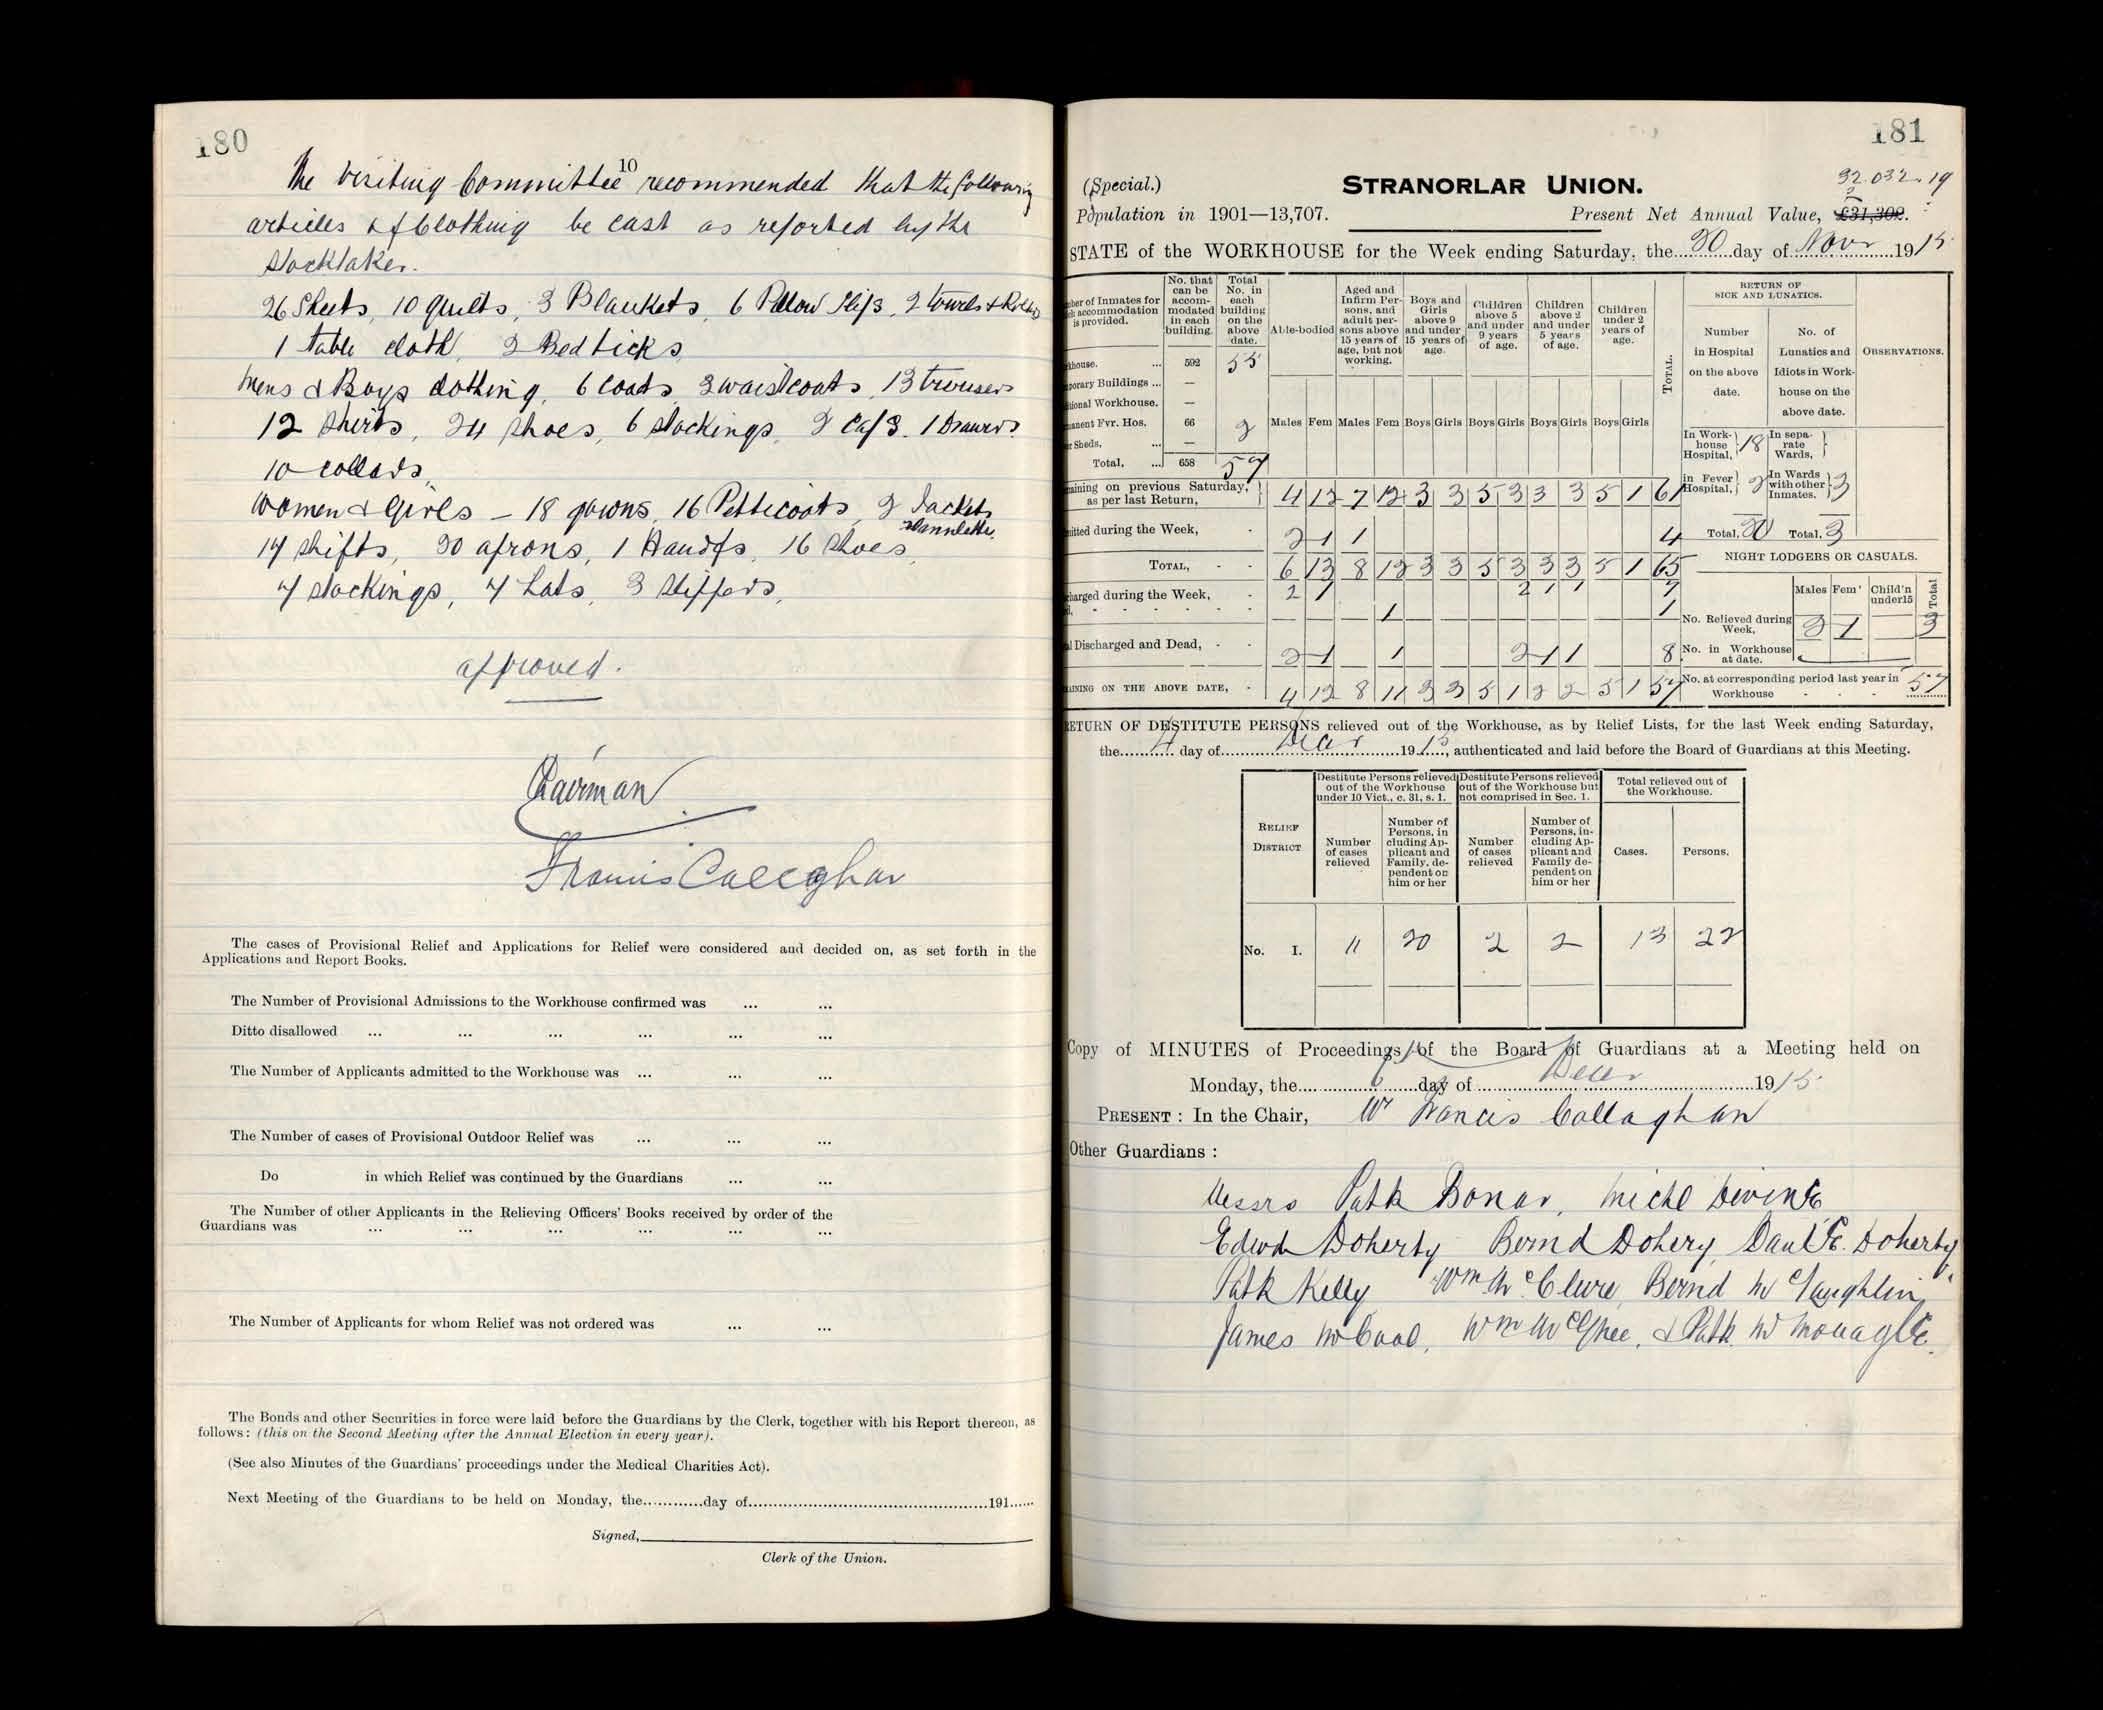 180
10
The Visiting Committee recommended that the following
articles of Clothing be cast as reported by the
Stocktaker.
26 Sheets, 10 quilts, 3 Blankets, 6 Pillow Slips, 2 towels &
1 table cloth, 2 Bed ticks
Mens & Boys clothing, 6 coats, 3 waistcoats, 13 trousers
12 Shirts, 24 shoes, 6 stockings, 2 caps. 1 Drawers.
10 collars,
Women & Girls — 18 gowns, 16 Petticoats, 2 Jackets
Flannelette,
14 shifts, 20 aprons, 1 Handfs, 16 shoes,
4 stockings, 4 hats, 3 slippers,
approved.
Chairman
Francis Callaghan
The cases of Provisional Relief and Applications for Relief were considered and decided on, as set forth in the
Applications and Report Books.
The Number of Provisional Admissions to the Workhouse confirmed was ... ...
Ditto disallowed ... ... ... ... ... ...
The Number of Applicants admitted to the Workhouse was ... ... ...
The Number of cases of Provisional Outdoor Relief was ... ... ...
Do in which Relief was continued by the Guardians ... ...
The Number of other Applicants in the Relieving Officers' Books received by order of the
Guardians was ... ... ... ... ... ...
The Number of Applicants for whom Relief was not ordered was ... ...
The Bonds and other Securities in force were laid before the Guardians by the Clerk, together with his Report thereon, as
follows: (this on the Second Meeting after the Annual Election in every year).
(See also Minutes of the Guardians' proceedings under the Medical Charities Act).
Next Meeting of the Guardians to be held on Monday, the............day of................................................191......
Signed,
Clerk of the Union.
181
(Special.)
STRANORLAR UNION.
32.032.19
Population in 1901—13,707.
Present Net Annual Value, £31,302.
STATE of the WORKHOUSE for the Week ending Saturday, the 20 day of Novr 1915
ber of Inmates for
ch accommodation
is provided.
No. that
can be
accom-
modated
in each
building.
Total
No. in
each
building
on the
above
date.
Able-bodied
Aged and
Infirm Per-
sons, and
adult per-
sons above
15 years of
age, but not
working.
Boys and
Girls
above 9
and under
15 years of
age.
Children
above 5
and under
9 years
of age.
Children
above 2
and under
5 years
of age.
Children
under 2
years of
age.
TOTAL.
RETURN OF
SICK AND LUNATICS.
Number
in Hospital
on the above
date.
No. of
Lunatics and
Idiots in Work-
house on the
above date.
OBSERVATIONS.
khouse. ... 592 55
porary Buildings ... —
itional Workhouse. —
manent Fvr. Hos. 66 2
er Sheds, ... —
Total, ... 658 57
Males Fem Males Fem Boys Girls Boys Girls Boys Girls Boys Girls
In Work-
house
Hospital, 18
In sepa-
rate
Wards,
in Fever
Hospital, 2
In Wards
with other
Inmates. 3
Total, 20 Total, 3
aining on previous Saturday,
as per last Return, 4 12 7 12 3 3 5 3 3 3 5 1 61
itted during the Week, 2 1 1 4
TOTAL, 6 13 8 12 3 3 5 3 3 3 5 1 65
harged during the Week, 2 1 2 1 1 7
d, 1 1
al Discharged and Dead, 2 1 1 2 1 1 8
AINING ON THE ABOVE DATE, 4 12 8 11 3 3 5 1 2 2 5 1 57
NIGHT LODGERS OR CASUALS.
Males Fem' Child'n under15 Total
No. Relieved during
Week, 2 1 3
No. in Workhouse
at date.
No. at corresponding period last year in
Workhouse 57
RETURN OF DESTITUTE PERSONS relieved out of the Workhouse, as by Relief Lists, for the last Week ending Saturday,
the 4 day of Decr 1915, authenticated and laid before the Board of Guardians at this Meeting.
RELIEF
DISTRICT
Destitute Persons relieved
out of the Workhouse
under 10 Vict., c. 31, s. 1.
Destitute Persons relieved
out of the Workhouse but
not comprised in Sec. 1.
Total relieved out of
the Workhouse.
Number
of cases
relieved
Number of
Persons, in
cluding Ap-
plicant and
Family, de-
pendent on
him or her
Number
of cases
relieved
Number of
Persons, in-
cluding Ap-
plicant and
Family de-
pendent on
him or her
Cases.
Persons.
No. I. 11 20 2 2 13 22
Copy of MINUTES of Proceedings of the Board of Guardians at a Meeting held on
Monday, the 6 day of Decr 1915
PRESENT : In the Chair, Mr Francis Callaghan
Other Guardians :
Messrs Patk Bonar, Michl Divine
Edwd Doherty Bernd Dohery, Danl E. Doherty
Patk Kelly Wm McClure, Bernd McLaughlin,
James McCool, Wm McGhee, & Patk McMonagle.